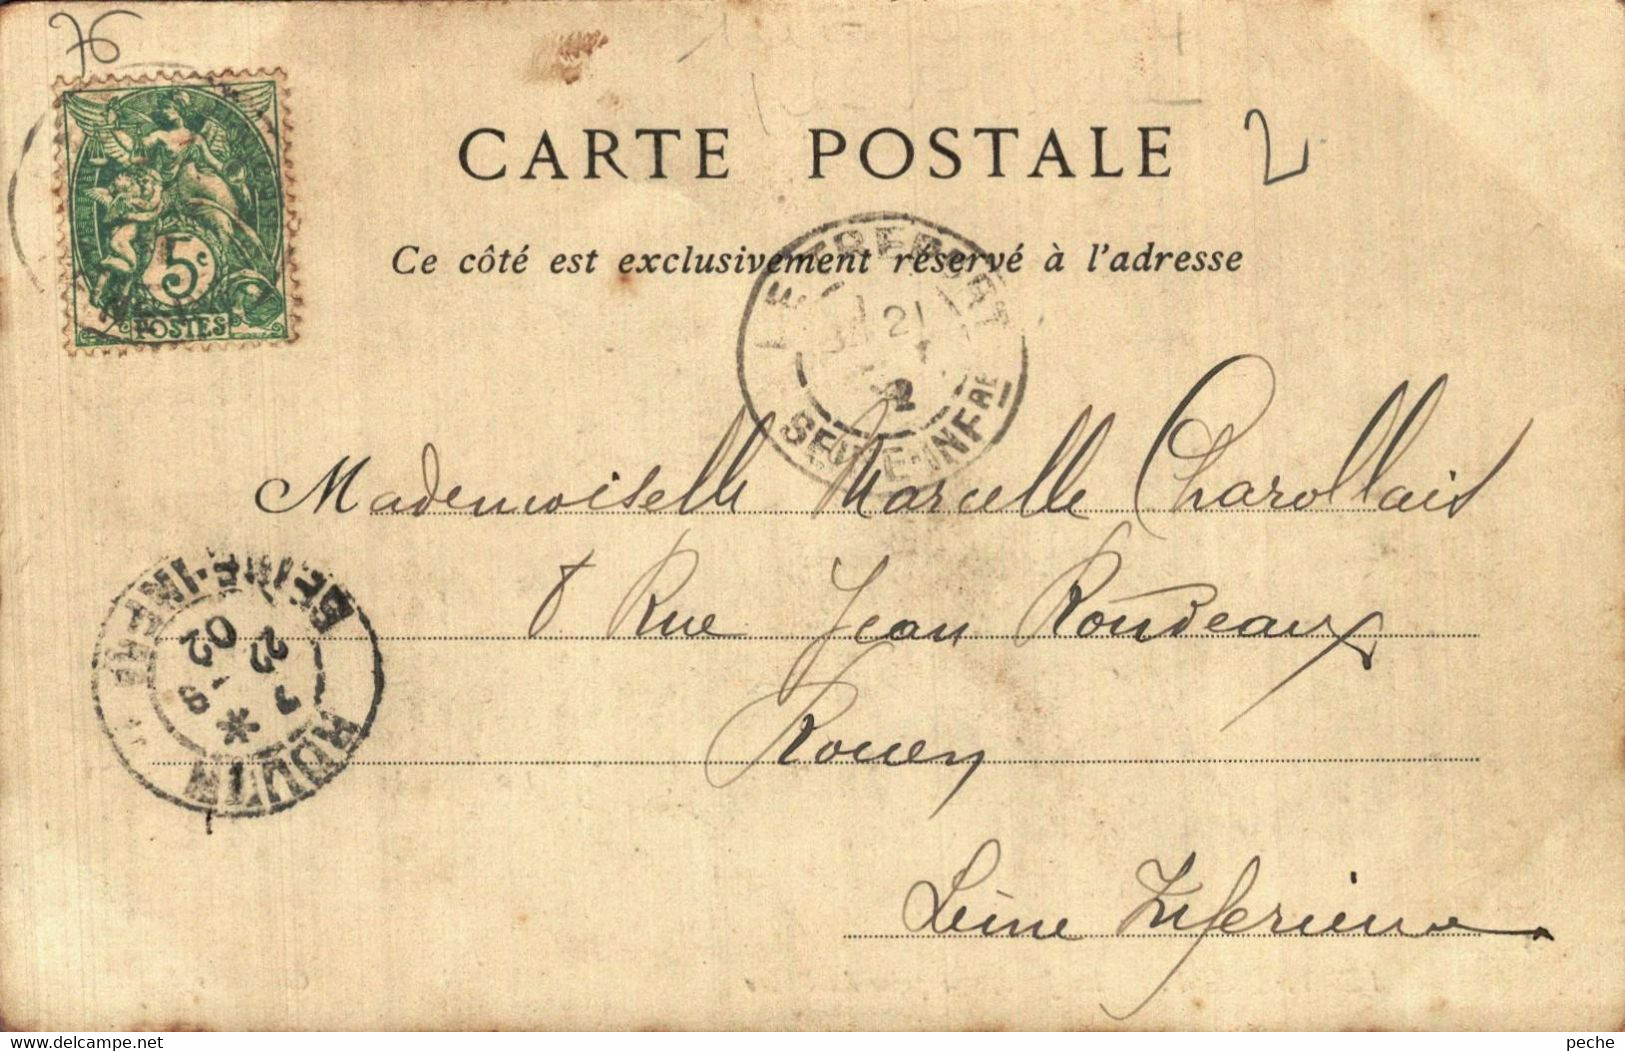 76
CARTE POSTALE 2
Ce côté est exclusivement réservé à l'adresse
5c
POSTES
LE TREPORT
21
2
SEINE-INFRE
Mademoiselle Marcelle Charollais
8 Rue Jean Rondeaux
Rouen
Seine Inferieure
ROUEN
22
02
SEINE-INFRE
peche